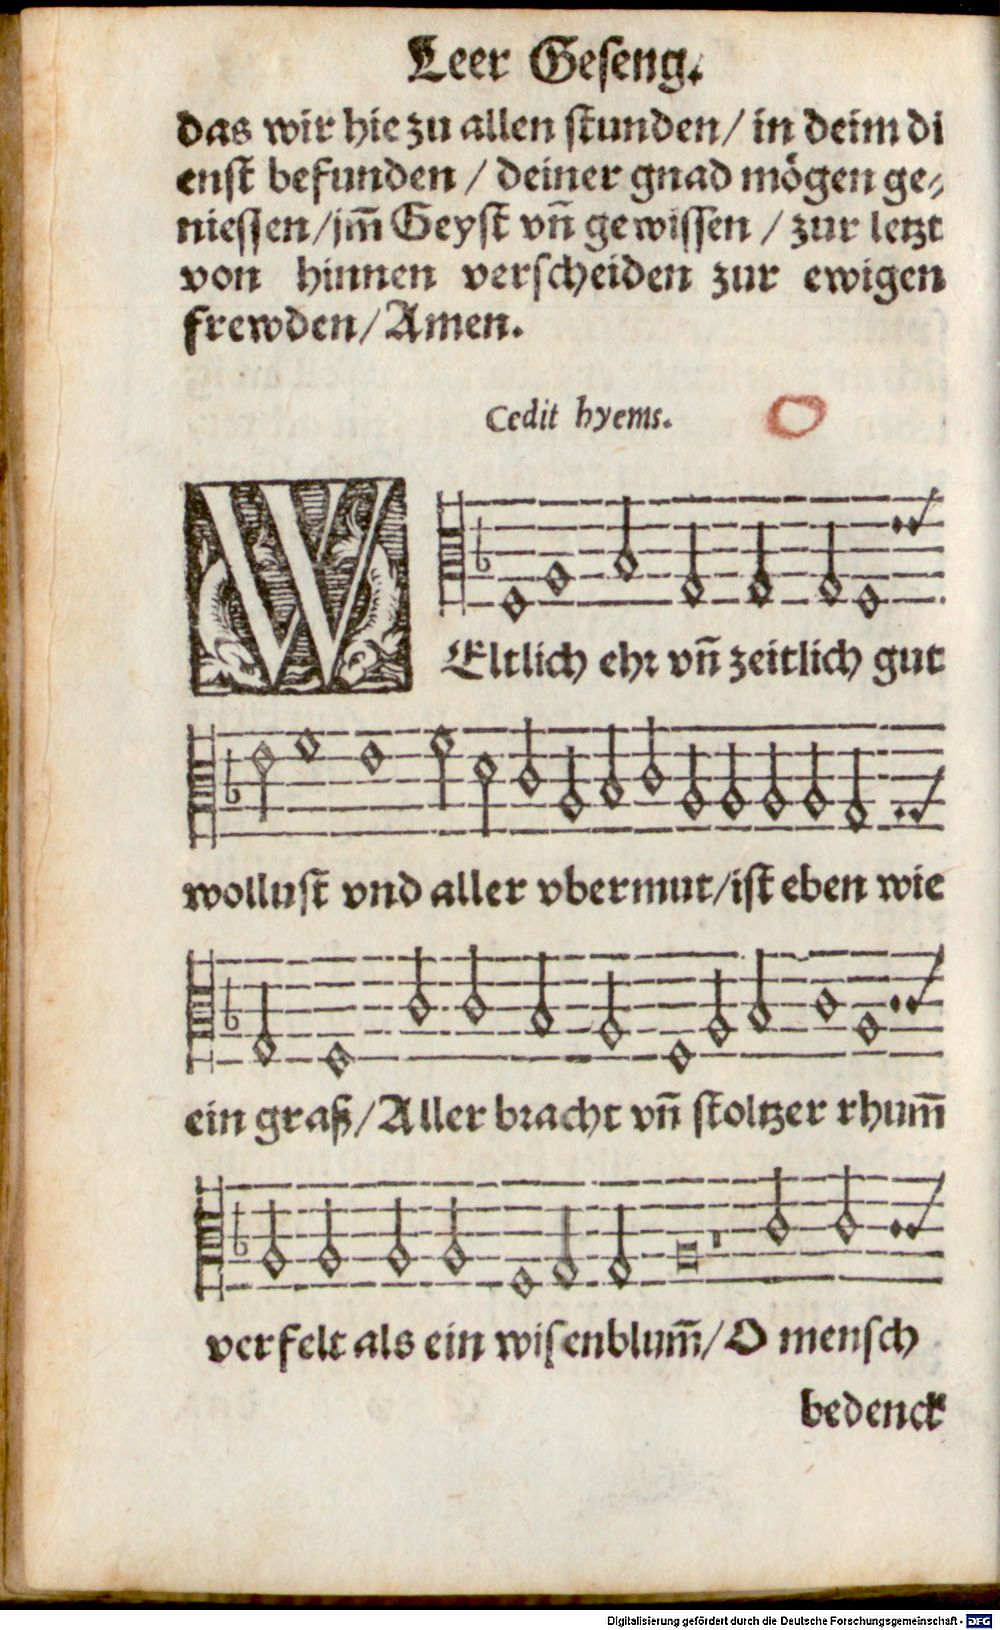 Leer Geseng.
das wir hie zu allen stunden/ in deim di
enst befunden / deiner gnad mögen ge-
niessen/jm̃ Geyst vñ gewissen / zur letzt
von hinnen verscheiden zur ewigen
frewden/ Amen.
Cedit hyems.
WEltlich ehr vñ zeitlich gut
wollust vnd aller vbermut/ist eben wie
ein graß/ Aller bracht vñ stoltzer rhum̃
verfelt als ein wisenblum̃/ O mensch
bedenck
Digitalisierung gefördert durch die Deutsche Forschungsgemeinschaft - DFG